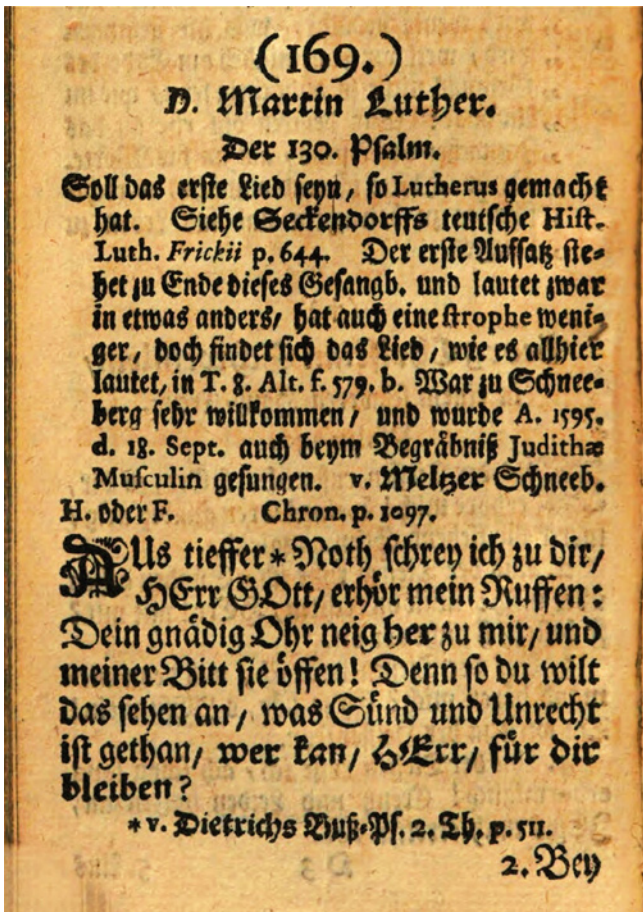 (169.)
D. Martin Luther.
Der 130. Psalm.
Soll das erste Lied seyn, so Lutherus gemacht
hat. Siehe Seckendorffs teutsche Hist.
Luth. Frickii p. 644. Der erste Auffsatz ste-
het zu Ende dieses Gesangb. und lautet zwar
in etwas anders, hat auch eine strophe weni-
ger, doch findet sich das Lied, wie es allhier
lautet, in T. 8. Alt. f. 579. b. War zu Schnee-
berg sehr willkommen, und wurde A. 1595.
d. 18. Sept. auch beym Begräbniß Judithæ
Musculin gesungen. v. Meltzer Schneeb.
H. oder F. Chron. p. 1097.
AUs tieffer * Noth schrey ich zu dir,
HErr GOtt, erhör mein Ruffen:
Dein gnädig Ohr neig her zu mir, und
meiner Bitt sie öffen! Denn so du wilt
das sehen an, was Sünd und Unrecht
ist gethan, wer kan, HErr, für dir
bleiben?
* v. Dietrichs Buß-Ps. 2. Th. p. 511.
2. Bey